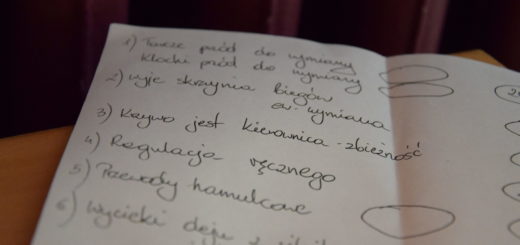 1) Tarcze przód do wymiany
klocki przód do wymiany
2) wyje skrzynia biegów
ew. wymiana
3) krzywo jest kierownica - zbieżność
4) Regulacja ręcznego
5) Przewody hamulcowe
6) Wycieki oleju z